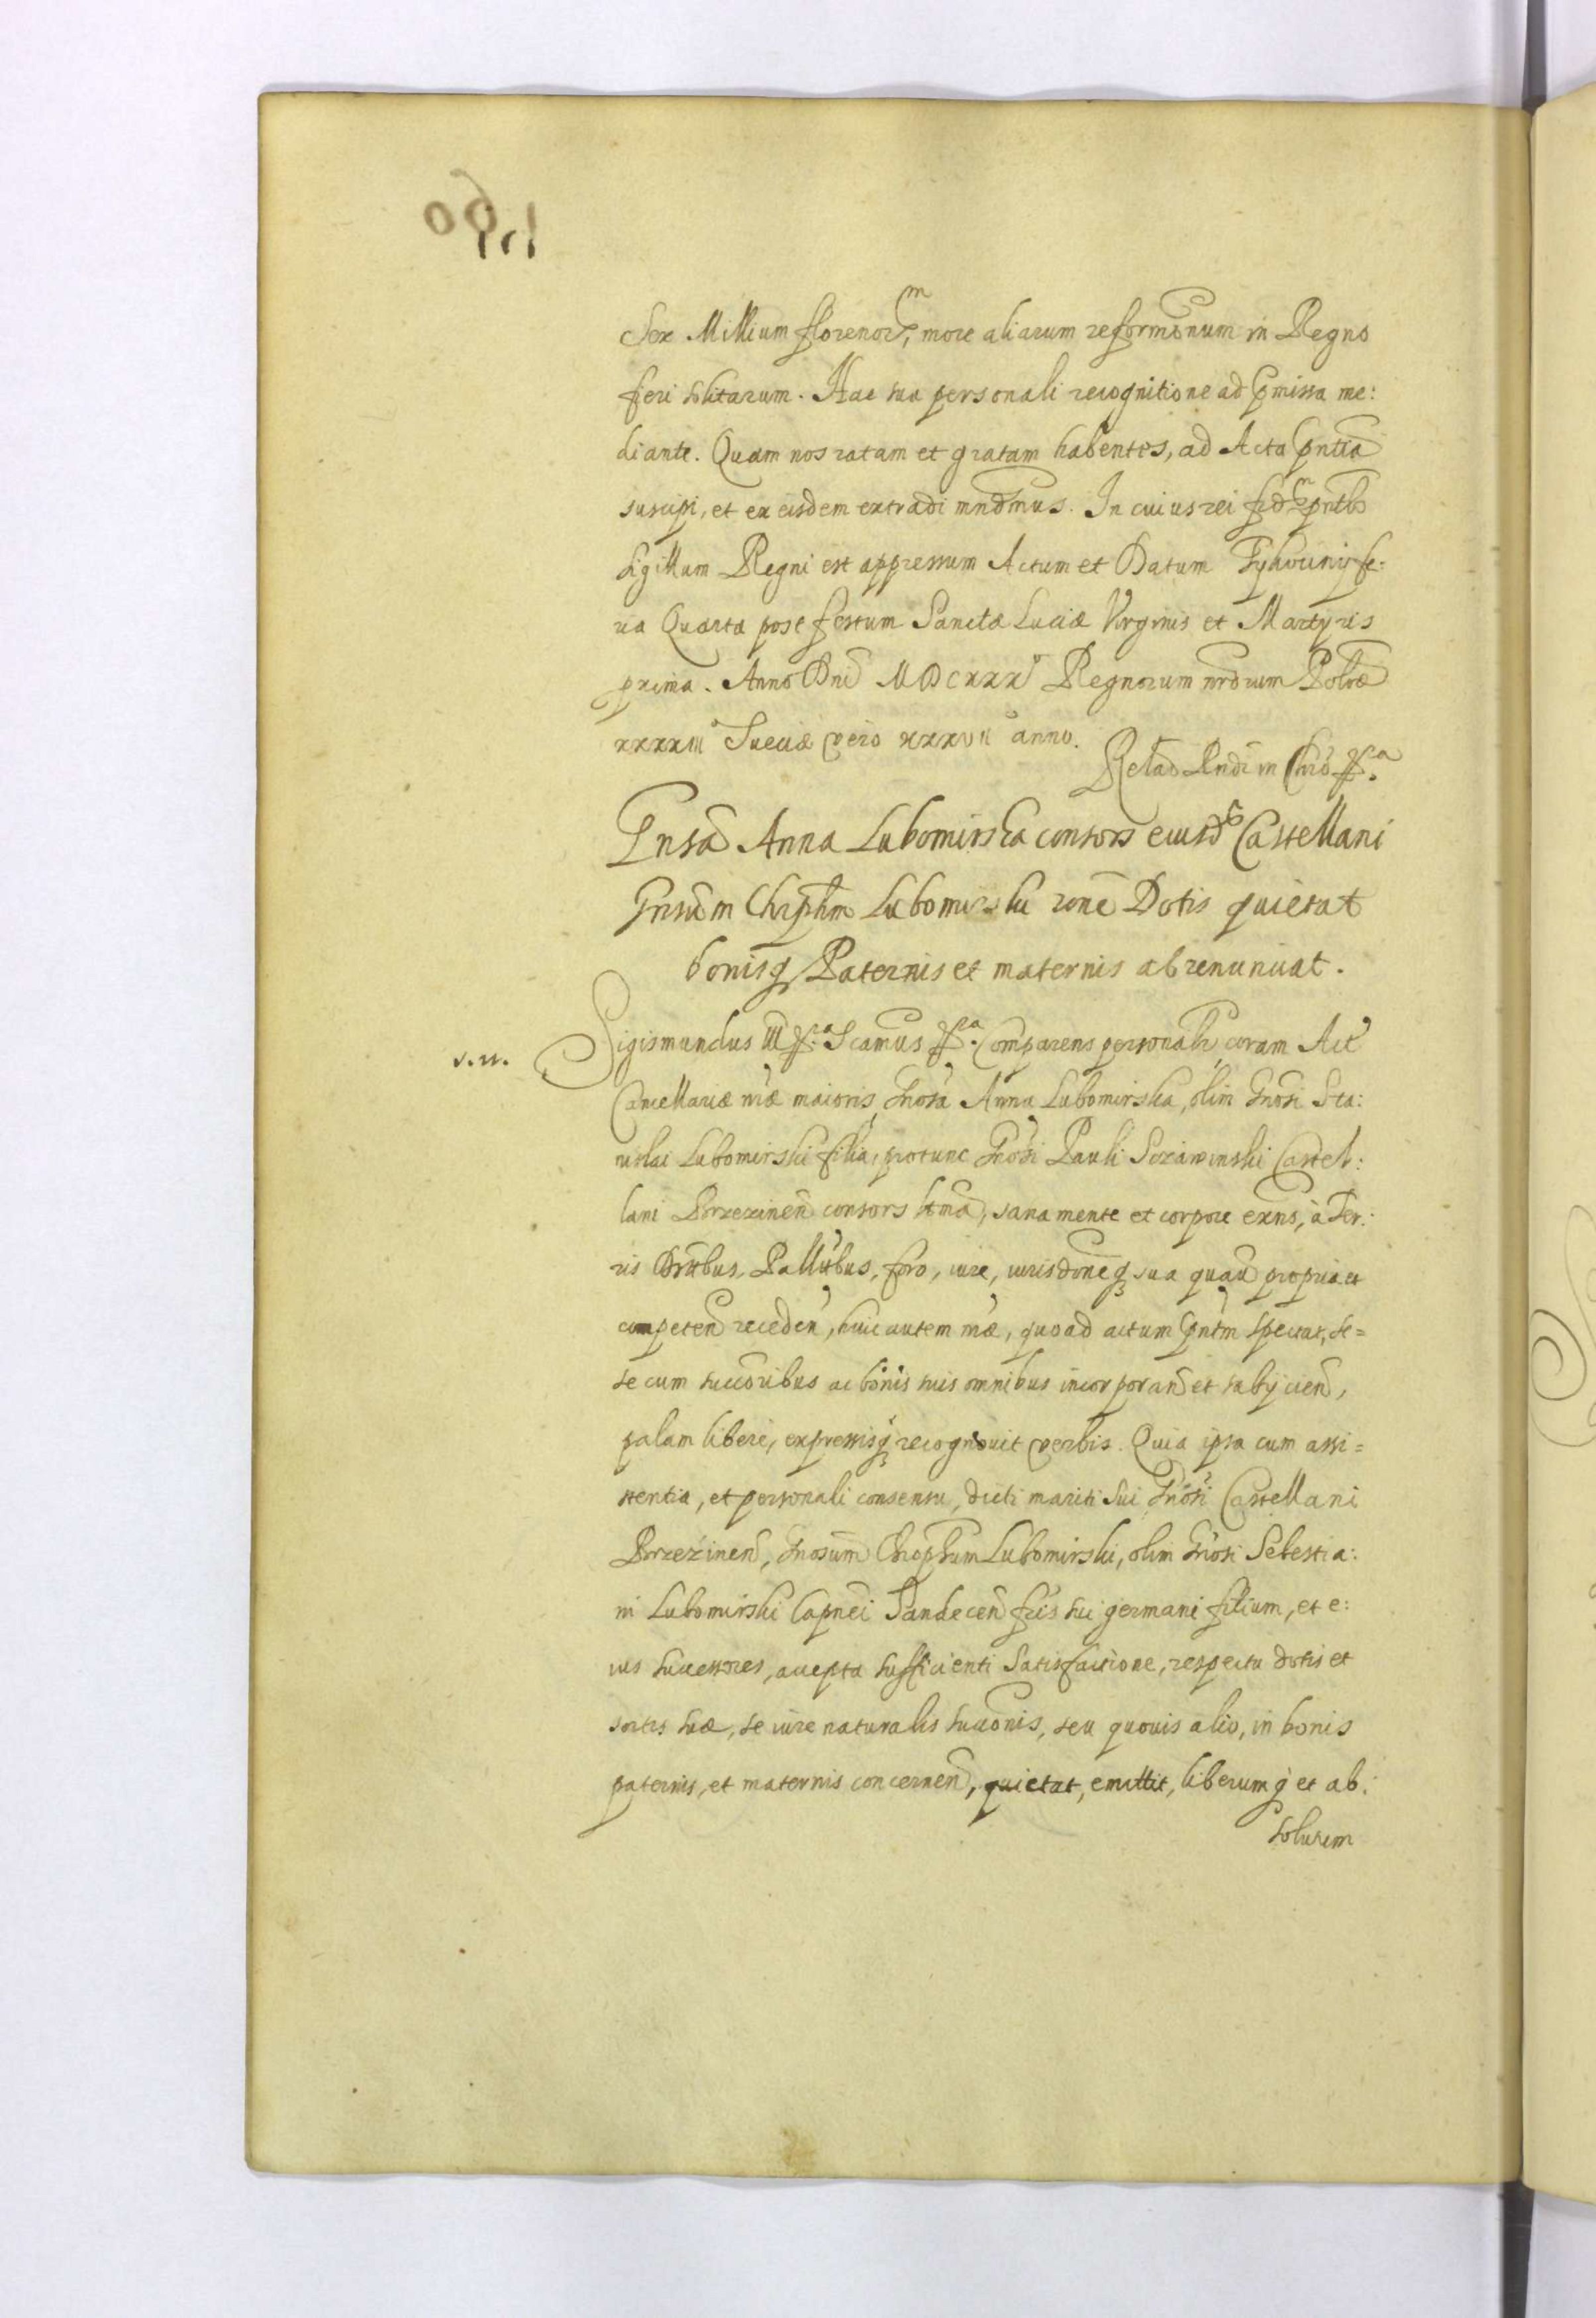 Sex Millium florenor̃m, more aliarum reformõnum in Regno
fieri solitarum. Hac sua personali recognitione ad p̃missa me:
diante. Quam nos ratam et gratam habentes, ad Acta p̃ntia
suscipi, et ex eisdem extradi mndmus. In cuius rei fidem p̃ntib̃
sigillum Regni est appressum Actum et Datum Tyhocinij fe:
ria Quarta post festum Sanctæ Luciæ Virginis et Martyris
prima. Anno Dni MDCXXX Regnorum nrõrum Polõæ
XXXXIII Sueciæ vero XXXVII anno.
Relaõ Rndi in Chrõ
Gnsa Anna Lubomirska consors eiusd̃ Castellani
Gnsum Chrphm Lubomirski rone Dotis quietat
bonisq3 Paternis et maternis abrenunciat.
Sigismundus III Scamus Comparens personalr coram Act
s. n.
Cancellariæ nræ maioris, Gnosa Anna Lubomirska, olim Gnosi Sta:
nislai Lubomirski filia, protunc Gnosi Pauli Szczawinski Castel:
lani Brzezinen consors ltma, sana mente et corpore exns, à Ter:
ris Distbus, Pallatbus, foro, iure, iurisdoneq3 sua quavi propria et
competen receden, huic autem nræ, quoad actum p̃ntm spectat, se=
se cum succoribus ac bonis suis omnibus incorporan et subijcien,
palam libere, expressisq3 recognovit verbis. Quia ipsa cum assi=
stentia, et personali consensu, dicti mariti sui Gnosi Castellani
Brzezinen, Gnosum Chrophum Lubomirski, olim Gnosi Sebestia:
ni Lubomirski Capnei Sandecen fris sui germani filium, et e:
ius successores, accepta sufficienti satisfactione, respectu dotis et
sortis suæ, se iure naturalis succonis, seu quovis alio, in bonis
paternis, et maternis concernen, quietat, emittit, liberumq3 et ab:
solutum